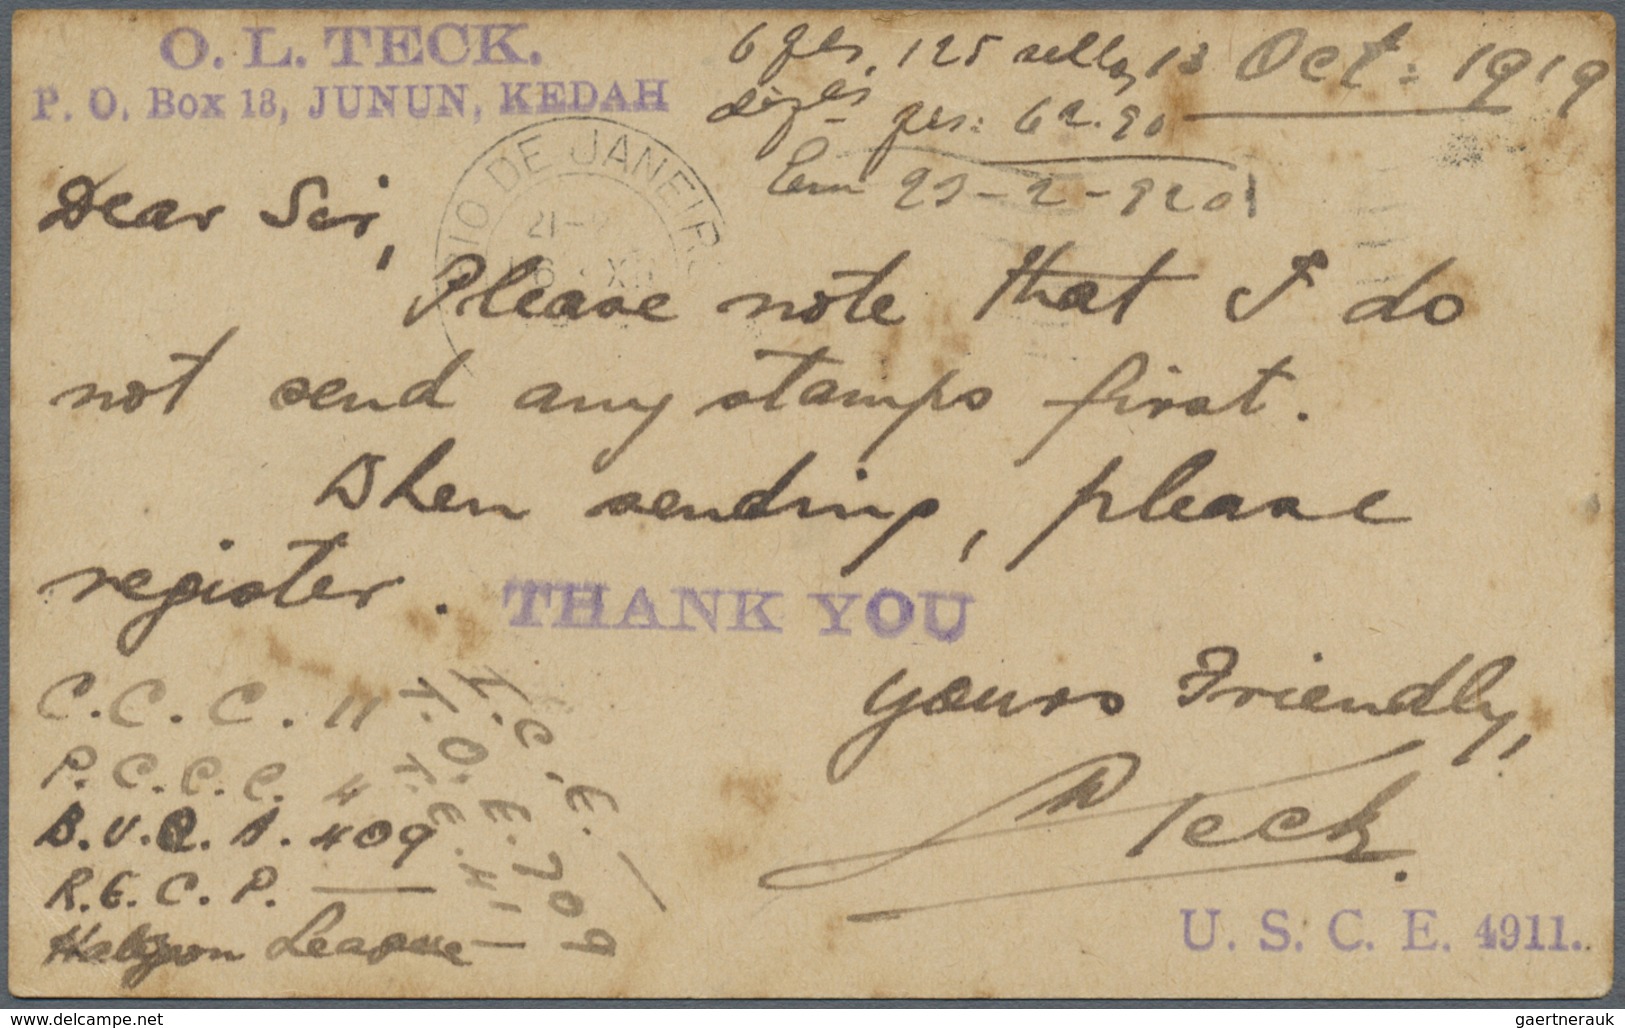 O. L. TECK.
P. O. Box 18, JUNUN, KEDAH
13 Oct: 1919
6 125 sellos
Em 23-2-920
RIO DE JANEIRO
21-
Dear Sir,
Please note that I do
not send any stamps first.
When sending, please
register.
THANK YOU
Yours Friendly,
Teck.
U. S. C. E. 4911.
C. C. C. 11
P. C. C. C. 4
B. V. Q. A. 409
R. E. C. P. —
Halcyon League —
I. C. E. /
T. O. E. 709
T. E. H. 1
delcampe.net
gaertnerauk